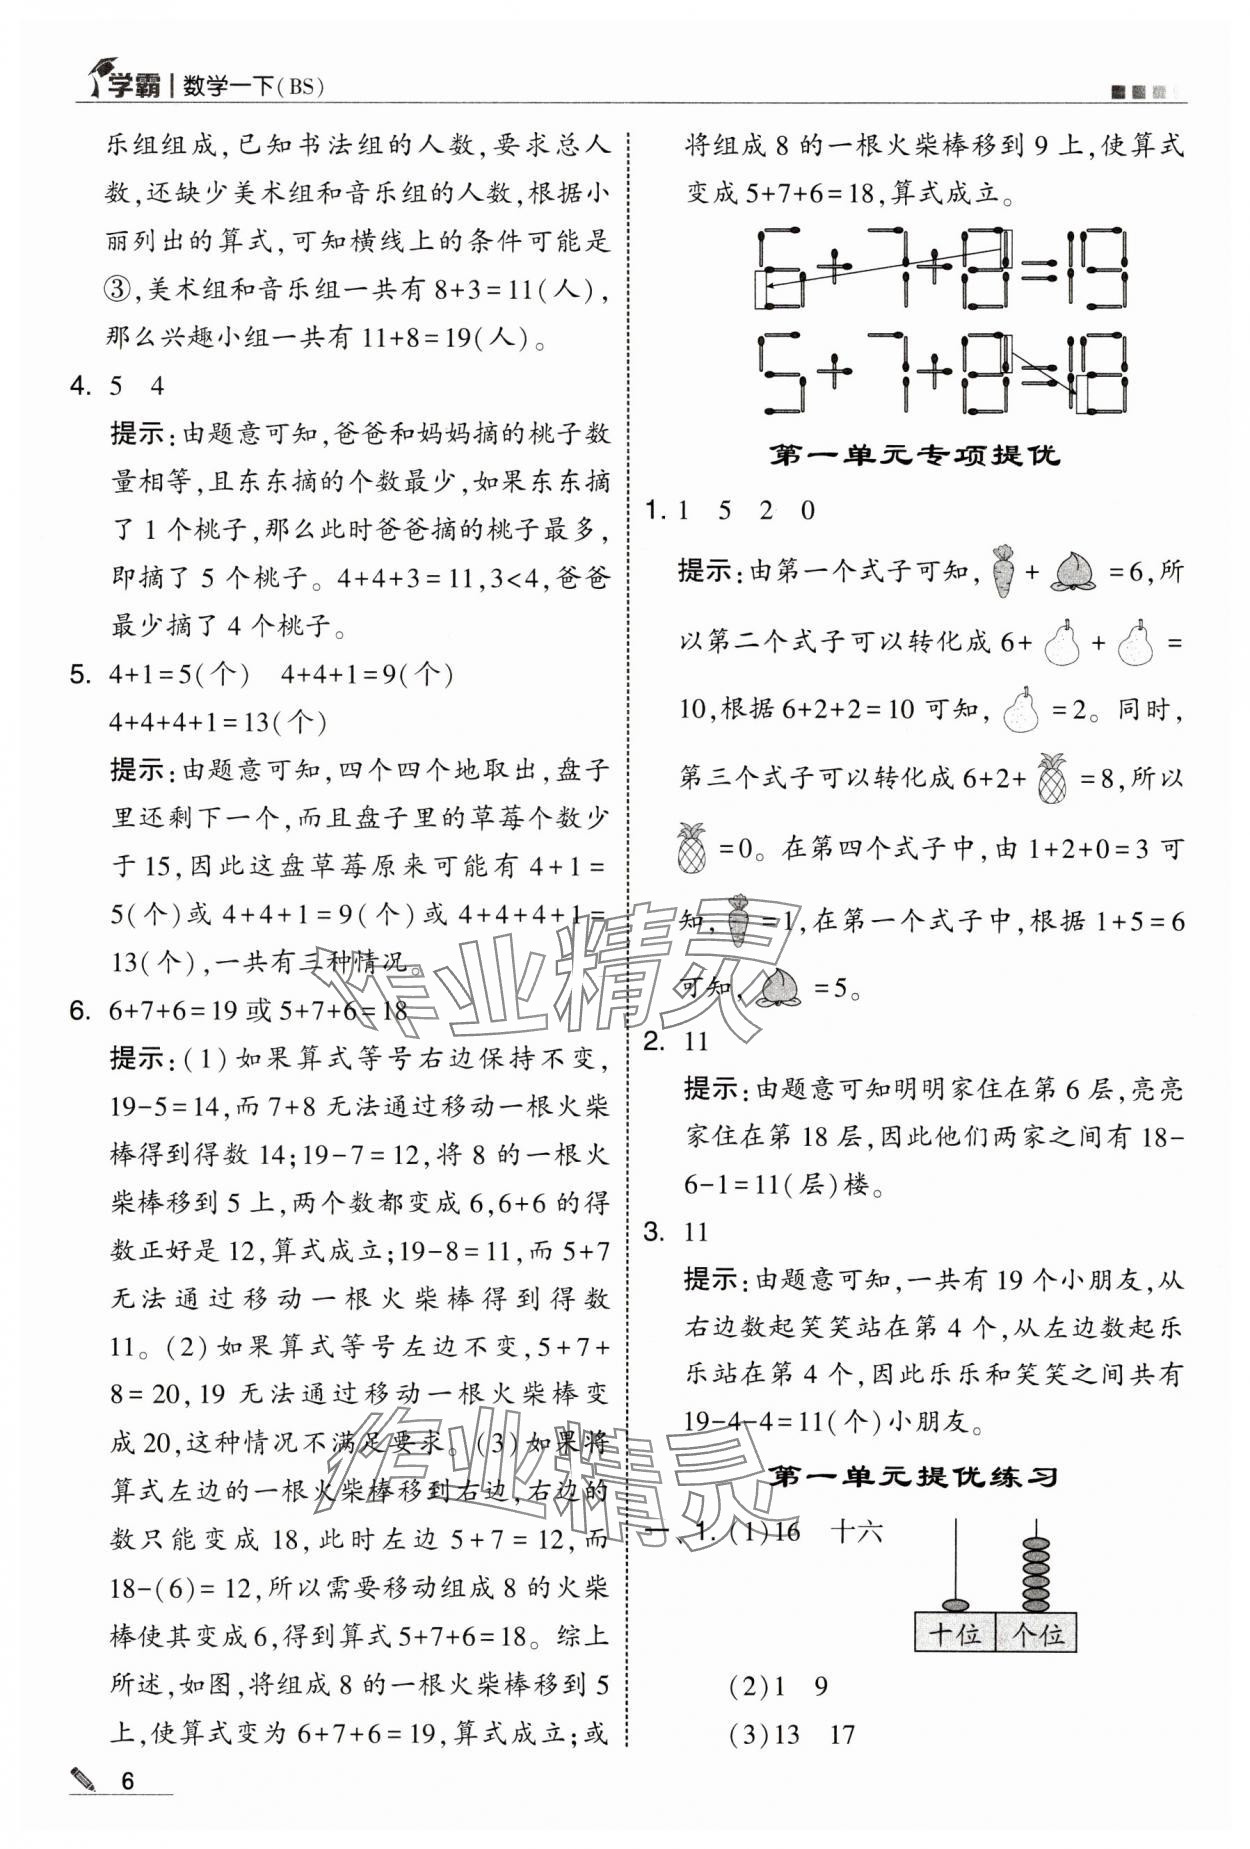 学霸 | 数学一下(BS)
乐组组成,已知书法组的人数,要求总人
数,还缺少美术组和音乐组的人数,根据小
丽列出的算式,可知横线上的条件可能是
③,美术组和音乐组一共有 8+3=11(人),
那么兴趣小组一共有 11+8=19(人)。
4. 5 4
提示:由题意可知,爸爸和妈妈摘的桃子数
量相等,且东东摘的个数最少,如果东东摘
了 1 个桃子,那么此时爸爸摘的桃子最多,
即摘了 5 个桃子。4+4+3=11,3<4,爸爸
最少摘了 4 个桃子。
5. 4+1=5(个) 4+4+1=9(个)
4+4+4+1=13(个)
提示:由题意可知,四个四个地取出,盘子
里还剩下一个,而且盘子里的草莓个数少
于 15,因此这盘草莓原来可能有 4+1=
5(个)或 4+4+1=9(个)或 4+4+4+1=
13(个),一共有三种情况。
6. 6+7+6=19 或 5+7+6=18
提示:(1)如果算式等号右边保持不变,
19-5=14,而 7+8 无法通过移动一根火柴
棒得到得数 14;19-7=12,将 8 的一根火
柴棒移到 5 上,两个数都变成 6,6+6 的得
数正好是 12,算式成立;19-8=11,而 5+7
无法通过移动一根火柴棒得到得数
11。(2)如果算式等号左边不变,5+7+
8=20,19 无法通过移动一根火柴棒变
成 20,这种情况不满足要求。(3)如果将
算式左边的一根火柴棒移到右边,右边的
数只能变成 18,此时左边 5+7=12,而
18-(6)=12,所以需要移动组成 8 的火柴
棒使其变成 6,得到算式 5+7+6=18。综上
所述,如图,将组成 8 的一根火柴棒移到 5
上,使算式变为 6+7+6=19,算式成立;或
将组成 8 的一根火柴棒移到 9 上,使算式
变成 5+7+6=18,算式成立。
6+7+8=19
5+7+8=18
第一单元专项提优
1. 1 5 2 0
提示:由第一个式子可知, + =6,所
以第二个式子可以转化成 6+ + =
10,根据 6+2+2=10 可知, =2。同时,
第三个式子可以转化成 6+2+ =8,所以
=0。在第四个式子中,由 1+2+0=3 可
知, =1,在第一个式子中,根据 1+5=6
可知, =5。
2. 11
提示:由题意可知明明家住在第 6 层,亮亮
家住在第 18 层,因此他们两家之间有 18-
6-1=11(层)楼。
3. 11
提示:由题意可知,一共有 19 个小朋友,从
右边数起笑笑站在第 4 个,从左边数起乐
乐站在第 4 个,因此乐乐和笑笑之间共有
19-4-4=11(个)小朋友。
第一单元提优练习
一、1. (1)16 十六
十位 个位
(2)1 9
(3)13 17
6
作业精灵
作业精灵